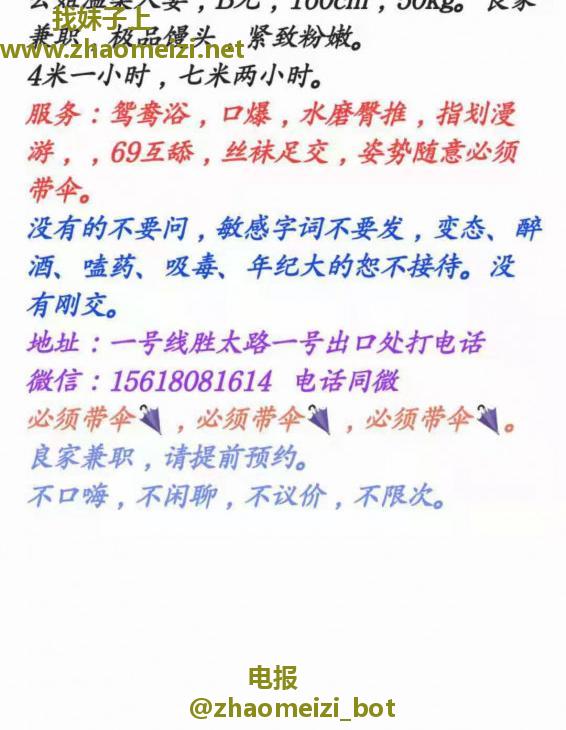 找妹子上
温柔人妻，160cm，50kg。良家
兼职，极品馒头，紧致粉嫩。
www.zhaomeizi.net
4米一小时，七米两小时。
服务：鸳鸯浴，口爆，水磨臀推，指划漫
游，，69互舔，丝袜足交，姿势随意必须
带伞。
没有的不要问，敏感字词不要发，变态、醉
酒、嗑药、吸毒、年纪大的恕不接待。没
有刚交。
地址：一号线胜太路一号出口处打电话
微信：15618081614 电话同微
必须带伞🌂，必须带伞🌂，必须带伞🌂。
良家兼职，请提前预约。
不口嗨，不闲聊，不议价，不限次。
电报
@zhaomeizi_bot